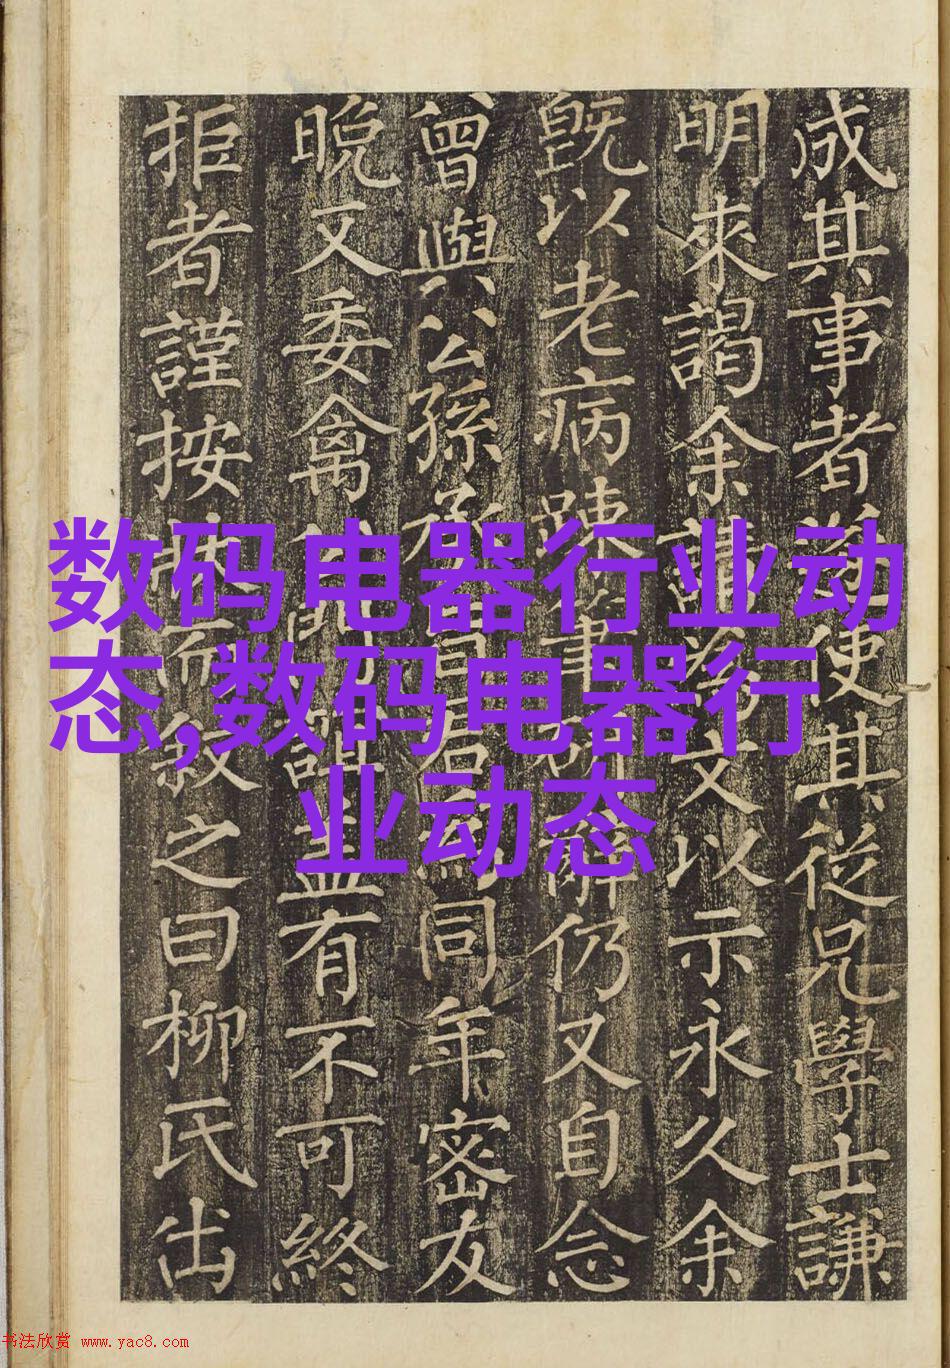 成其事者使其從兄學士謙
明來謁余請為文以示永久余
既以老病踈筆仍又自念
曾與公孫承同年密友
晚又委禽有不可終
拒者謹按而敘之曰柳氏出
数码电器行业动
态,数码电器行
业动态
书法欣赏 www.yac8.com